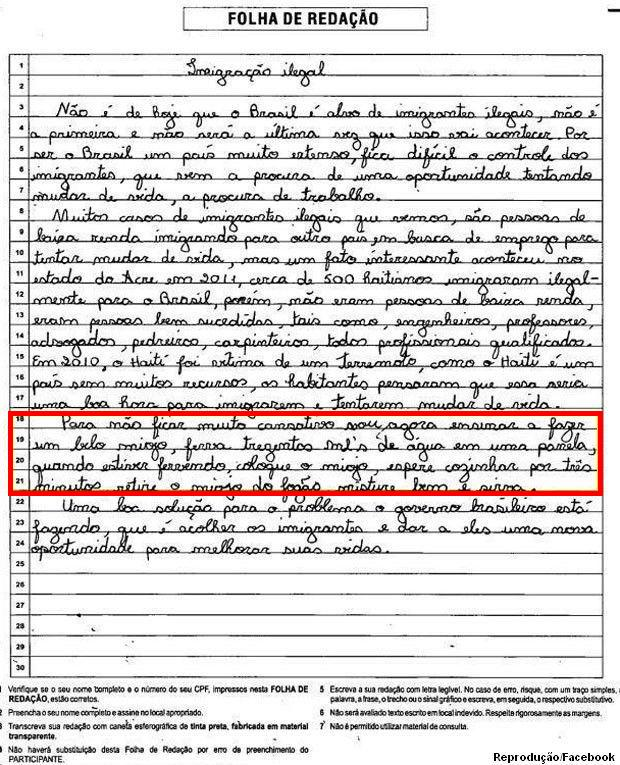 FOLHA DE REDAÇÃO
1 Imigração ilegal
2
3 Não é de hoje que o Brasil é alvo de imigrantes ilegais, não é
4 a primeira e não será a última vez que isso vai acontecer. Por
5 ser o Brasil um país muito extenso, fica difícil o controle dos
6 imigrantes, que vem a procura de uma oportunidade tentando
7 mudar de vida, a procura de trabalho.
8 Muitos casos de imigrantes ilegais que vemos, são pessoas de
9 baixa renda imigrando para outro país, em busca de emprego para
10 tentar mudar de vida, mas um fato interessante aconteceu no
11 estado do Acre em 2011, cerca de 500 haitianos imigraram ilegal-
12 mente para o Brasil, porém, não eram pessoas de baixa renda,
13 eram pessoas bem sucedidas, tais como, engenheiros, professores,
14 advogados, pedreiros, carpinteiros, todos profissionais qualificados.
15 Em 2010, o Haití foi vítima de um terremoto, como o Haití é um
16 país sem muitos recursos, os habitantes pensaram que essa seria
17 uma boa hora para imigrarem e tentarem mudar de vida.
18 Para não ficar muito cansativo, vou agora ensinar a fazer
19 um belo miojo, ferva trezentos ml's de água em uma panela,
20 quando estiver fervendo, coloque o miojo, espere cozinhar por três
21 minutos retire o miojo do fogão misture bem e sirva.
22 Uma boa solução para o problema o governo brasileiro está
23 fazendo, que é acolher os imigrantes e dar a eles uma nova
24 oportunidade para melhorar suas vidas.
25
26
27
28
29
30
1 Verifique se o seu nome completo e o número do seu CPF, impressos nesta FOLHA DE
REDAÇÃO, estão corretos.
2 Preencha o seu nome completo e assine no local apropriado.
3 Transcreva sua redação com caneta esferográfica de tinta preta, fabricada em material
transparente.
Não haverá substituição desta Folha de Redação por erro de preenchimento do
PARTICIPANTE.
5 Escreva a sua redação com letra legível. No caso de erro, risque, com um traço simples, a
palavra, a frase, o trecho ou o sinal gráfico e escreva, em seguida, o respectivo substitutivo.
6 Não será avaliado texto escrito em local indevido. Respeite rigorosamente as margens.
7 Não é permitido utilizar material de consulta.
Reprodução/Facebook